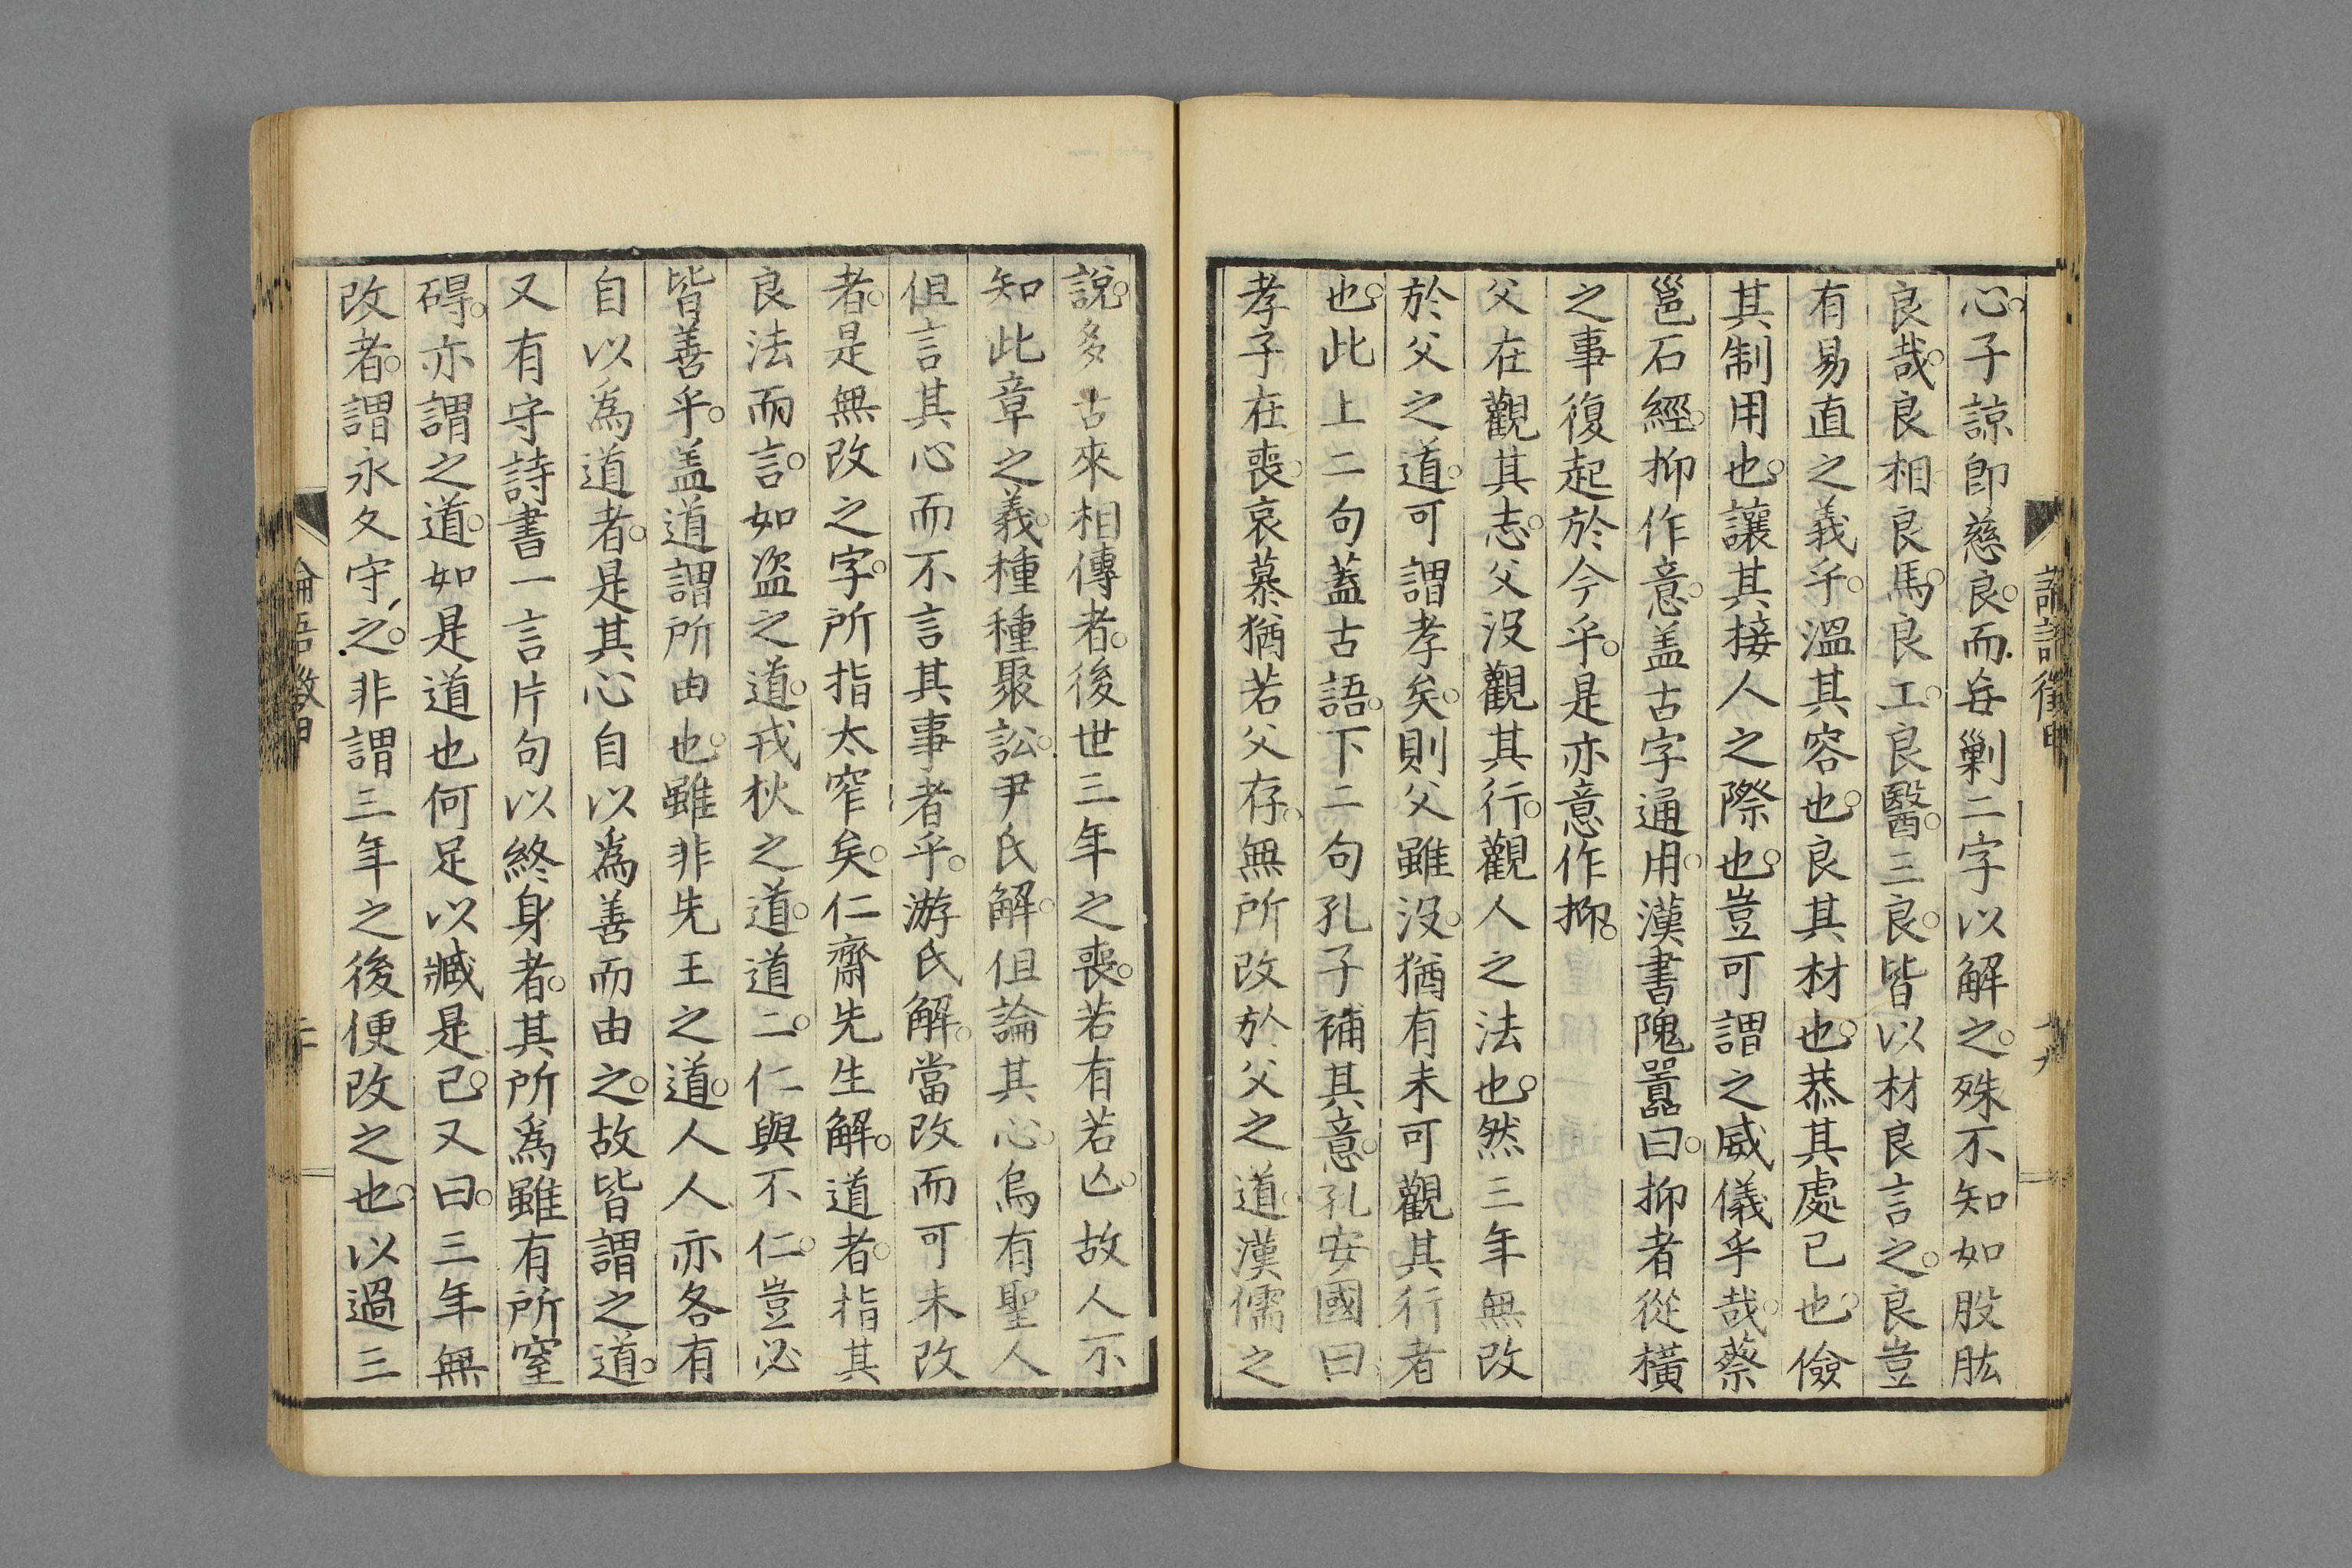 心。子諒卽慈良。而毎剿二字以解之。殊不知如股肱
良哉。良相良馬。良工。良醫。三良。皆以材良言之。良豈
有易直之義乎。溫其容也。良其材也。恭其處己也。儉
其制用也。讓其接人之際也。豈可謂之威儀乎哉。蔡
邕石經。抑作意。盖古字通用。漢書隗囂曰。抑者從橫
之事復起於今乎。是亦意作抑。
父在觀其志。父没觀其行。觀人之法也。然三年無改
於父之道。可謂孝矣。則父雖没。猶有未可觀其行者
也。此上二句蓋古語。下二句孔子補其意。孔安國曰
孝子在喪。哀慕猶若父存。無所改於父之道。漢儒之
說。多古來相傳者。後世三年之喪。若有若亾。故人不
知此章之義。種種聚訟。尹氏解。但論其心。烏有聖人
但言其心而不言其事者乎。游氏解。當改而可未改
者。是無改之字。所指太窄矣。仁齋先生解。道者。指其
良法而言。如盜之道。戎狄之道。道二。仁與不仁。豈必
皆善乎。盖道謂所由也。雖非先王之道。人人亦各有
自以爲道者。是其心自以爲善而由之。故皆謂之道。
又有守詩書一言片句以終身者。其所爲雖有所窒
碍。亦謂之道。如是道也何足以臧是已。又曰。三年無
改者。謂永久守之。非謂三年之後便改之也。以過三
論語徵甲
十九
論語徵甲